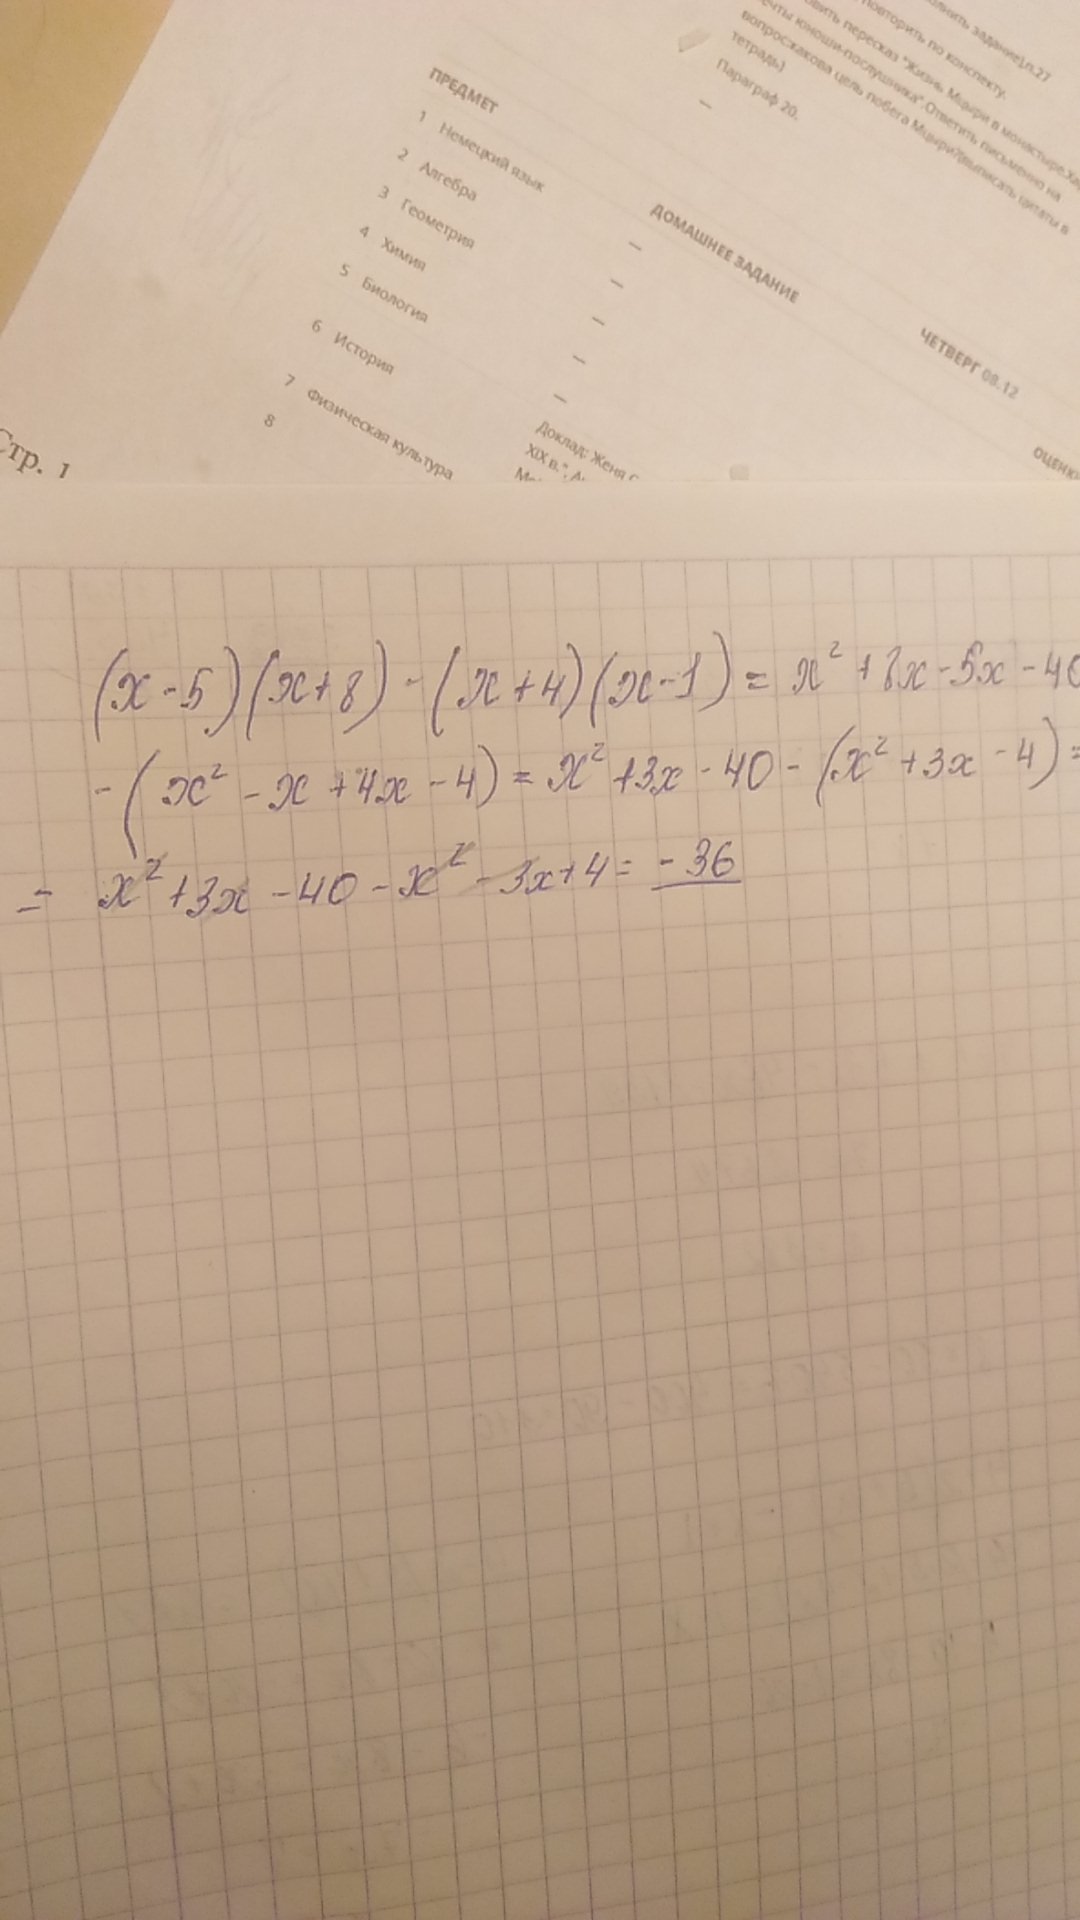 олнить задание),п.27
Повторить по конспекту.
овить пересказ "Жизнь Мцыри в монастыре.Хар
ечты юноши-послушника".Ответить письменно на
вопрос:какова цель побега Мцыри?(выписать цитаты в
тетрадь)
Параграф 20.
—
ПРЕДМЕТ
ДОМАШНЕЕ ЗАДАНИЕ
ЧЕТВЕРГ 08.12
ОЦЕНК
1 Немецкий язык —
2 Алгебра —
3 Геометрия —
4 Химия —
5 Биология —
6 История Доклад: Женя С
XIX в.",
7 Физическая культура
8
Стр. 1
(x-5)(x+8) - (x+4)(x-1) = x² + 8x - 5x - 40
- (x² - x + 4x - 4) = x² + 3x - 40 - (x² + 3x - 4) =
= x² + 3x - 40 - x² - 3x + 4 = - 36